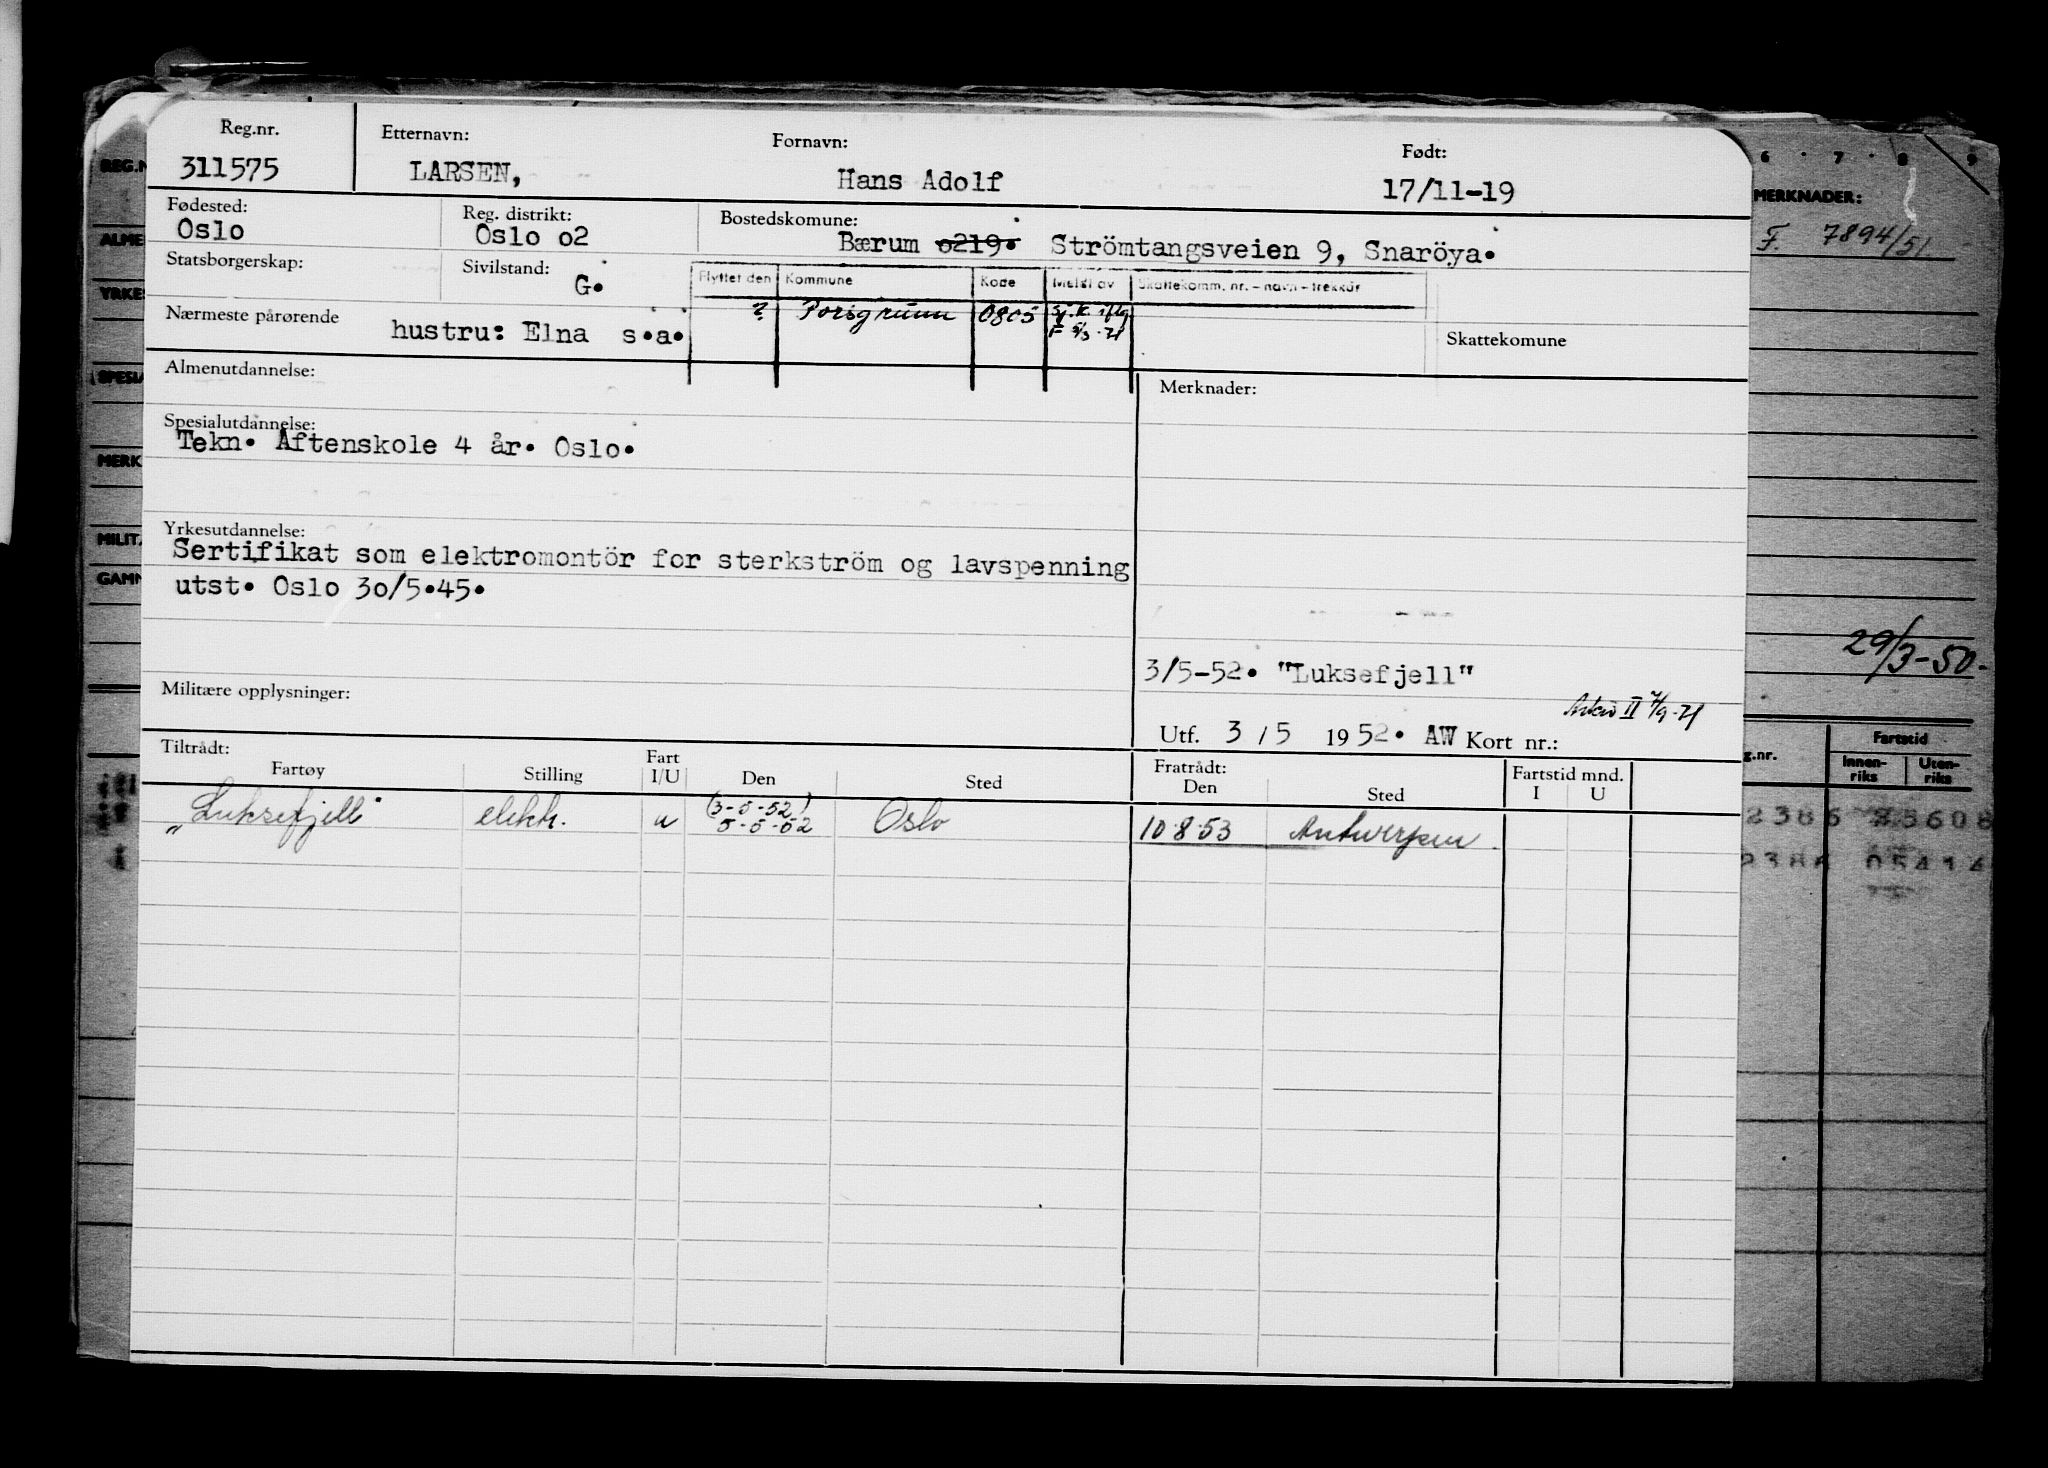 Reg.nr. Etternavn: Fornavn: Født:
311575 LARSEN, Hans Adolf 17/11-19
Fødested: Reg. distrikt: Bostedskomune:
Oslo Oslo o2 Bærum o219. Strömtangsveien 9, Snaröya.
Statsborgerskap: Sivilstand: G.
Flyttet den Kommune Kode Meldt av Skattekomm. nr. - navn - trekkår
? Porsgrunn 0805 Sj.k. iflg
F 5/3-71
Nærmeste pårørende hustru: Elna s.a.
Skattekomune
Almenutdannelse: Merknader:
Spesialutdannelse:
Tekn. Aftenskole 4 år. Oslo.
Yrkesutdannelse:
Sertifikat som elektromontör for sterkström og lavspenning
utst. Oslo 3o/5.45.
3/5-52. "Luksefjell"
Militære opplysninger:
Arkiv II 7/9-71
Utf. 3 / 5 1952. AW Kort nr.:
Tiltrådt: Fratrådt: Fartstid mnd.
Fartøy Stilling Fart I/U Den Sted Den Sted I U
(3-5-52)
"Luksefjell" elektr. u 5-5-52 Oslo 10.8.53 Antwerpen.
REG.N
ALME
YRKES
SPESIA
MERK
MILIT
GAMM
6 7 8 9
MERKNADER:
F. 7894/51.
29/3-50.
g.nr. Fartstid
Innen-riks Uten-riks